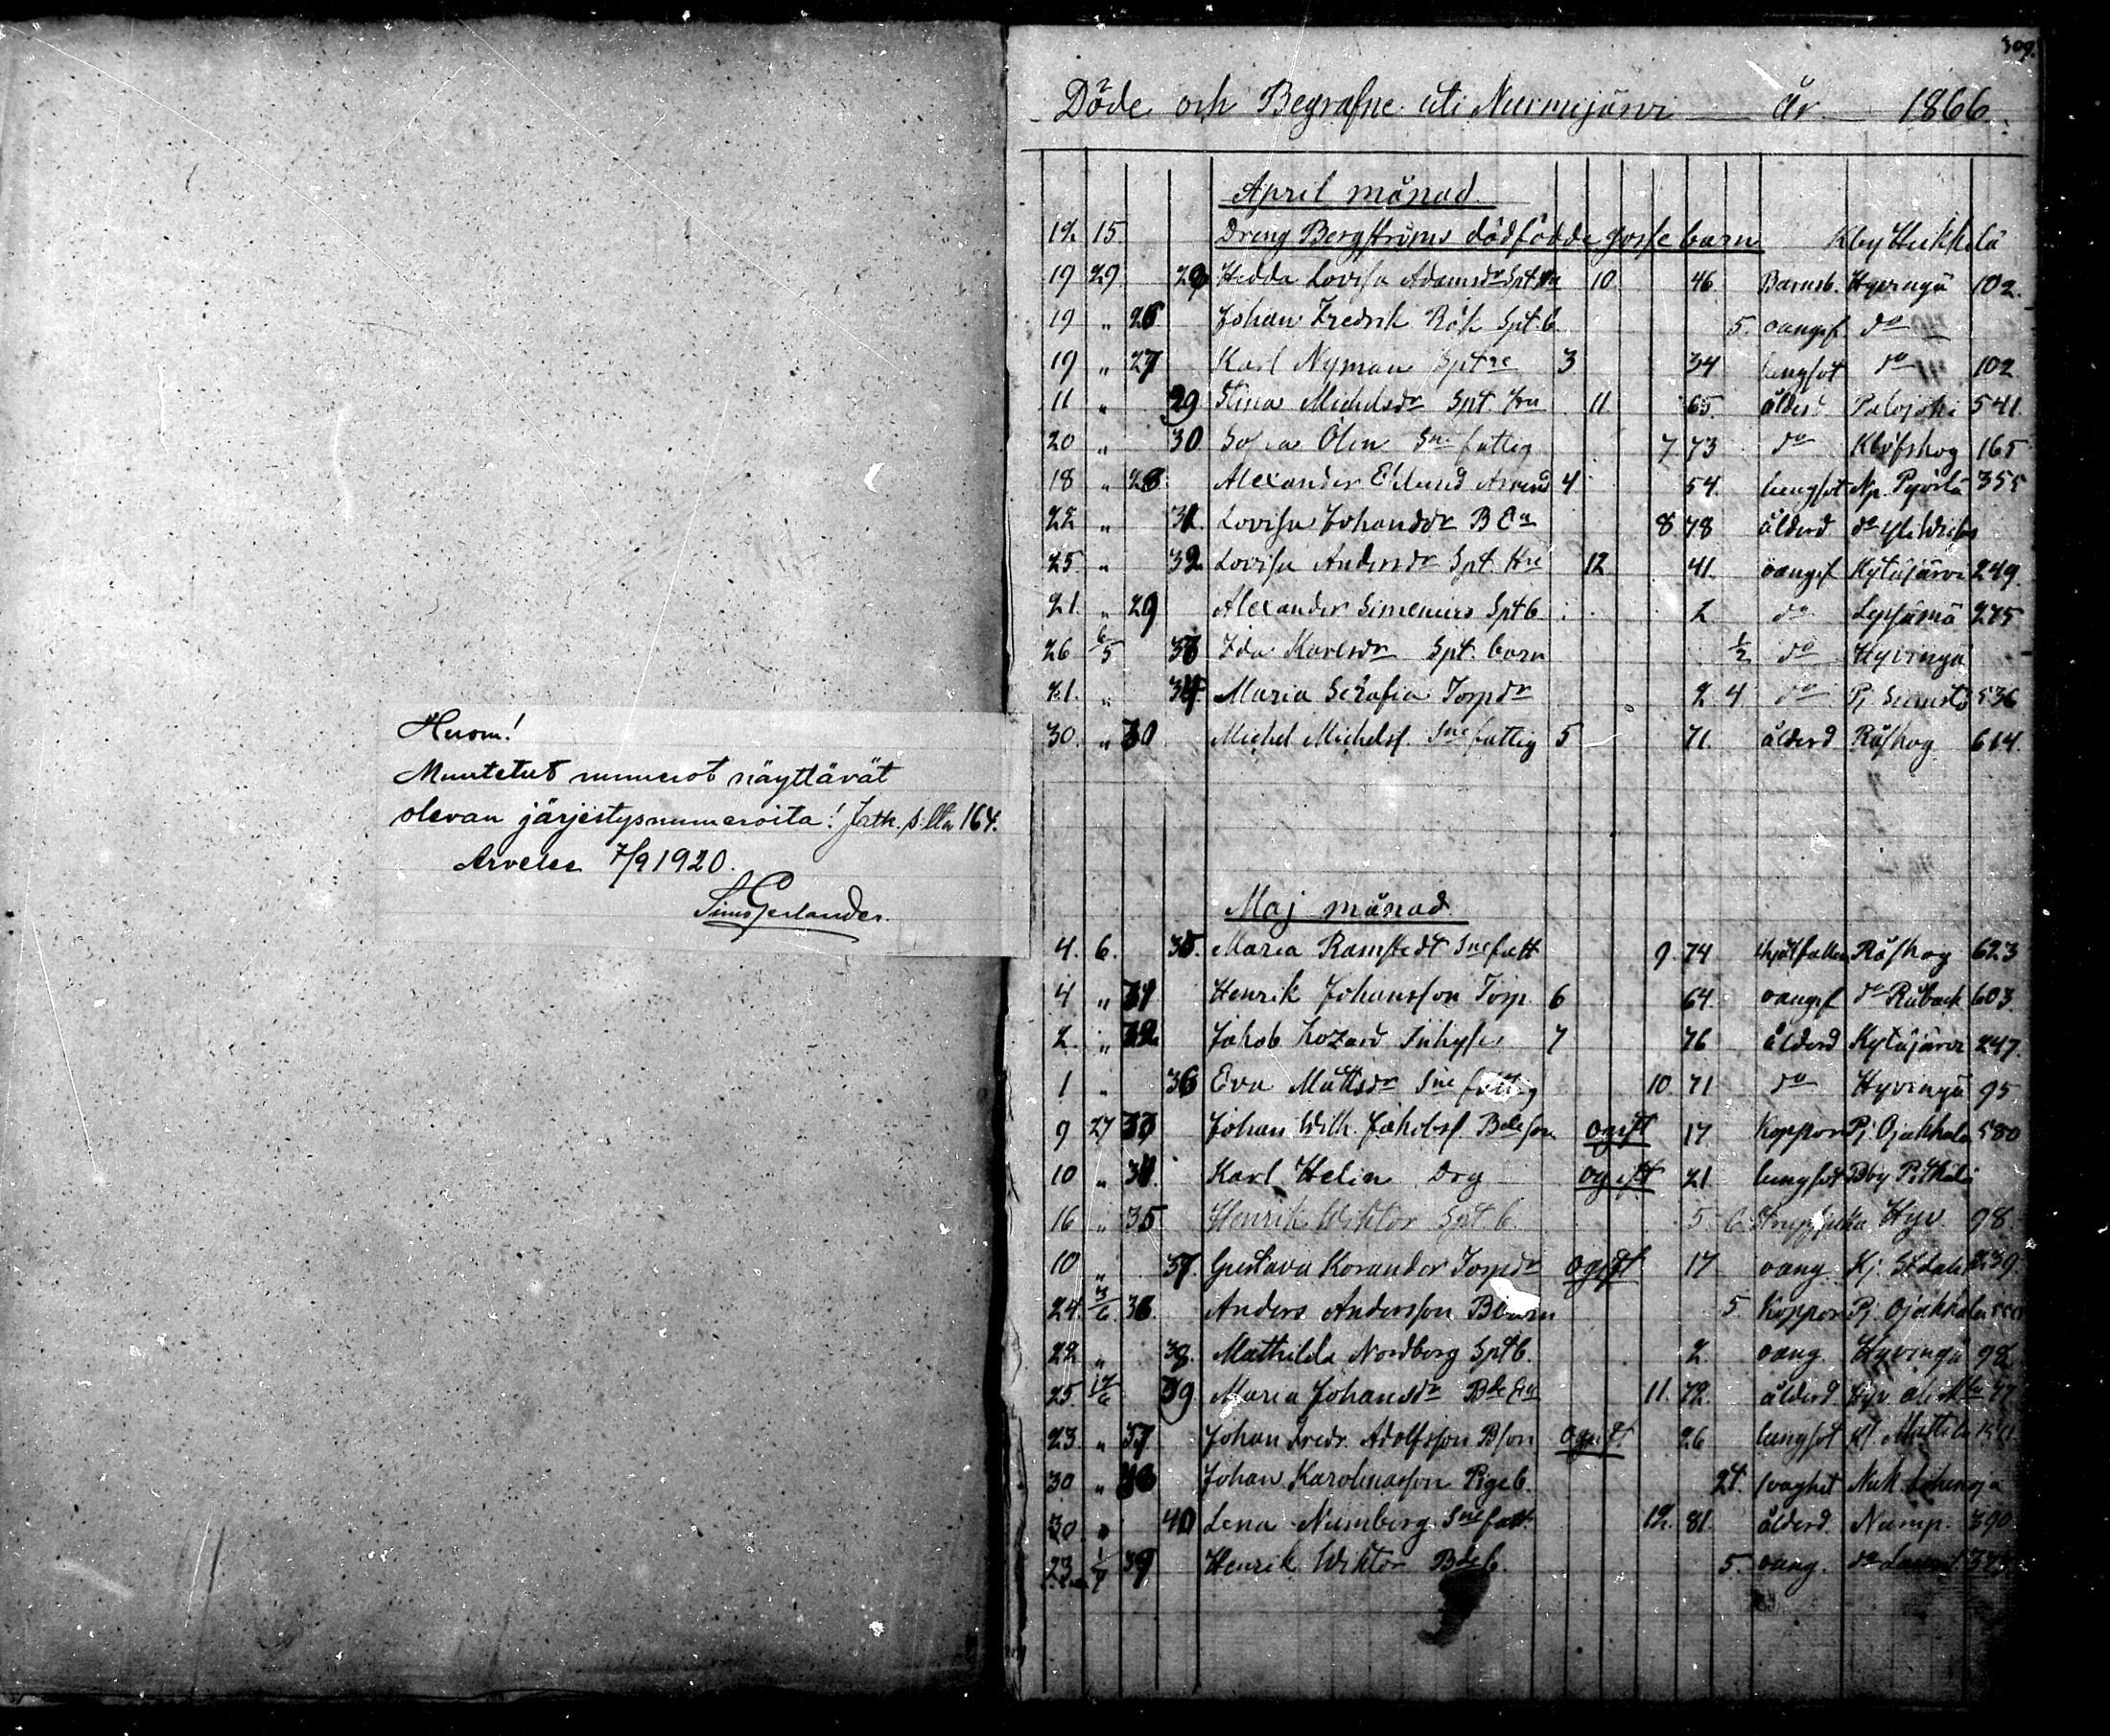 Huom!
Muutetut numerot näyttävät
olevan järjestysnumeroita! Jatk. s. lla 164.
7/9 1920.
309.
Döde och Begrafne uti Nurmijärvi år 1866.
April månad.
12. 15. Dreng Bergströms dödfödde gosse barn Kby Heikkilä
19 29 28 Hedda Lovisa Adamsdr Spt 10 46. Barnsb. Hyvingä 102.
19 " 26 Johan Fredrik Spt. b 5. oangif do
19 " 27 Karl Nyman Sptre 3 34 lungsot do 102
11 " 29 Stina Michelsdr Spt. Hu 11 65 ålderd Palojoki 541.
20 " 30 Sofia Olin Sne fattig 7 73 do Klöfskog 165
18 " 28 Alexander Edlund 4 54. lungsot Np. Pyörlä 355
22 " 31. Lovisa Johansdr B Ea 8 78 ålderd do
25. " 32. Lovisa Andersdr Spt. Hu 12 41. oangif Kytäjärvi 249.
21. " 29 Alexander Simenius Spt b 2 do Lepsämä 275
26 6/5 33 Ida Karlsdr Spt. barn 1/2 do Hyvingä
21. " 34. Maria Serafia Torpdr 2 4 do Pj 536
30. " 30 Michel Michelss. Sne fattig 5 71. ålderd Röskog 614.
Maj månad
4. 6. 35. Maria Ramstedt Sne fatt 9. 74 Röskog 623
4 " 31 Henrik Johansson Torp. 6 64. oangif do Råback 603.
2. " 32. Jakob Inhyses 7 76 ålderd Kytäjärvi 247.
1 " 36 Eva Mattsdr Sne fattig 10. 71 do Hyvingä 95
9 27 33 Johan Wilh. Jakobss. Bdeson ogift 17 Koppor Pj. Ojakkala 580
10 " 34. Karl Helin Drg ogift 21 lungsot
16 " 35 Henrik Wiktor Spt b. 5 6. Hyv. 98.
10 " 37 Gustava Korander Torpdr ogift 17 oang. 239
24. 3/6 36. Anders Andersson B barn 5. Koppor Pj. Ojakkala
22 " 38. Mathilda Nordberg Spt b. 2. oang. Hyvingä 98
25. 17/6 39. Maria Johansdr Bde Ea 11. 72. ålderd Hyv.
23. " 37 Johan Fredr. Adolfsson Bson ogift. 26 lungsot
30 " 38 Johan Karolinasson Pigeb. 24. svaghet
30. " 40 Lena Nurmberg Sne fatt. 12. 81. ålderd Nump. 390
23 1/7 39 Henrik Wiktor Bde b. 5. oang.